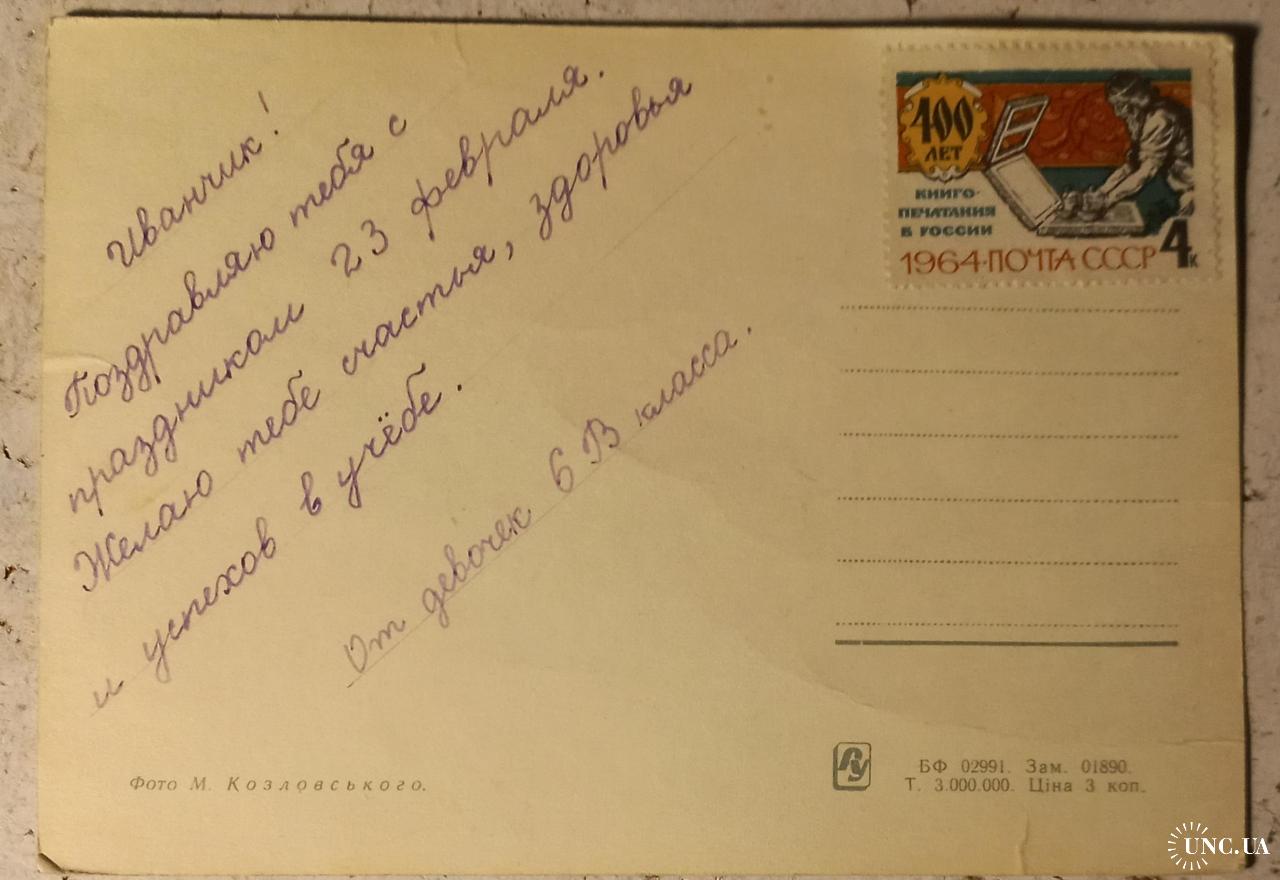 Иванчик!
Поздравляю тебя с
праздником 23 февраля.
Желаю тебе счастья, здоровья
и успехов в учёбе.
От девочек 6 В класса.
400
ЛЕТ
КНИГО-
ПЕЧАТАНИЯ
В РОССИИ
1964·ПОЧТА СССР 4к
Фото М. Козловського.
БФ 02991. Зам. 01890.
Т. 3.000.000. Ціна 3 коп.
UNC.UA